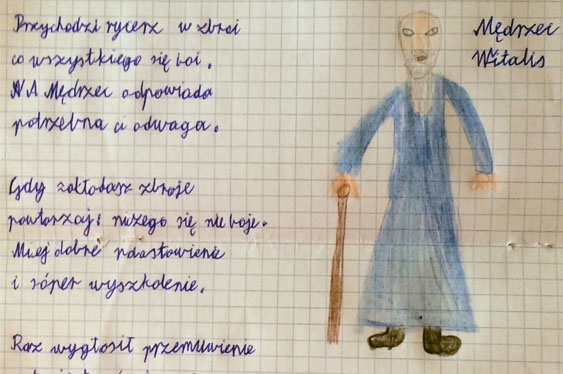 Przychodzi rycerz w zbroi
co wszystkiego się boi.
A Mędrzec odpowiada
potrzebna ci odwaga.
Gdy zakłodasz zbroje
powtarzaj: niczego się nie boje.
Miej dobre nastawienie
i súper wyszkolenie.
Raz wygłosił przemuwienie
Mędrzec
Witalis